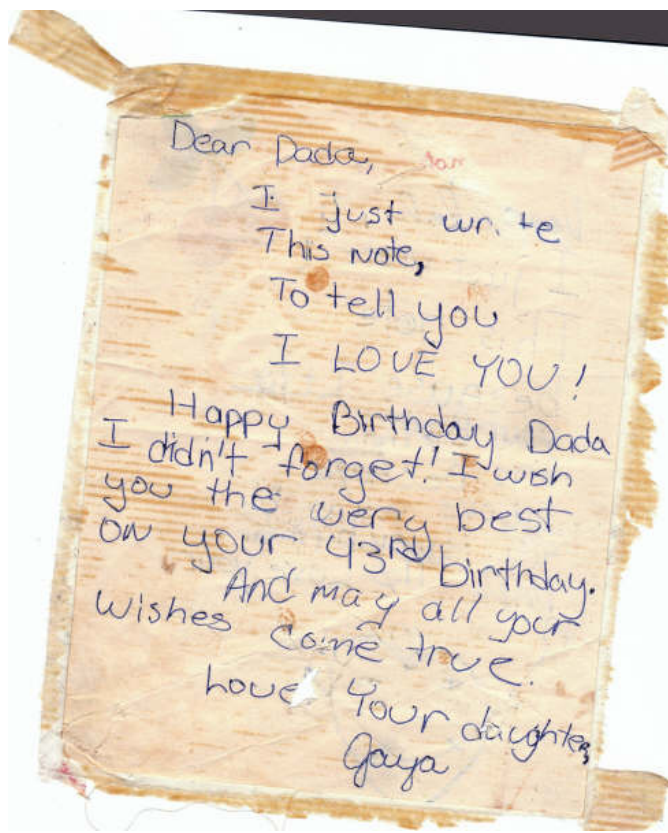 Dear Dada,
I just write
This note,
To tell you
I LOVE YOU!
Happy Birthday Dada
I didn't forget! I wish
you the very best
on your 43rd birthday.
And may all your
wishes come true.
Love Your daughter,
Gaya